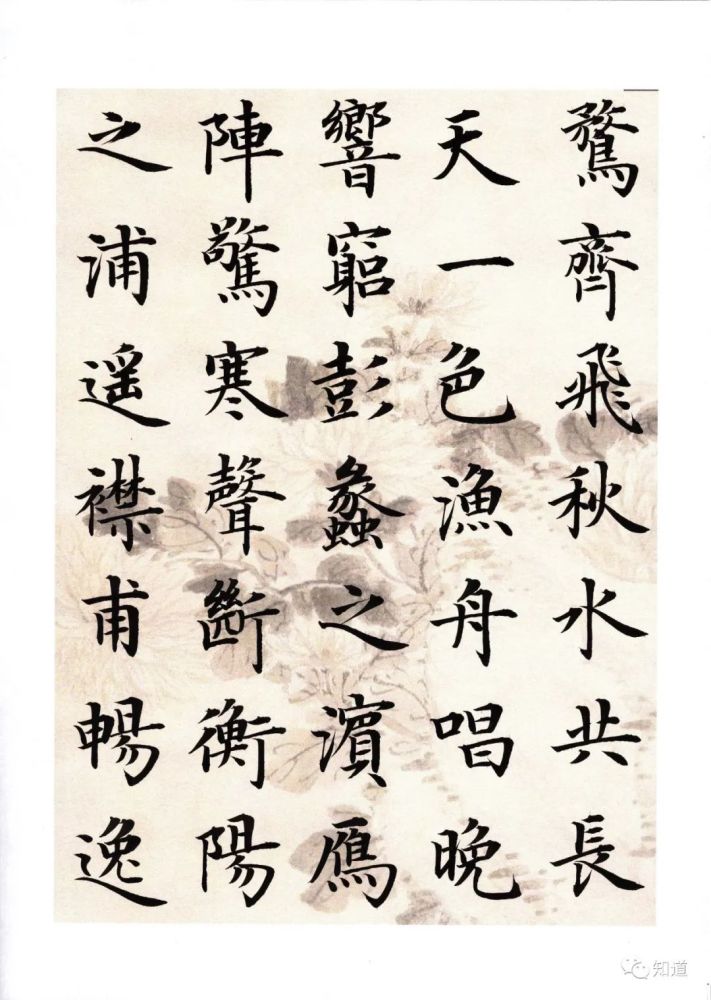 鶩齊飛秋水共長
天一色漁舟唱晚
響窮彭蠡之濱鴈
陣驚寒聲斷衡陽
之浦遥襟甫暢逸
知道